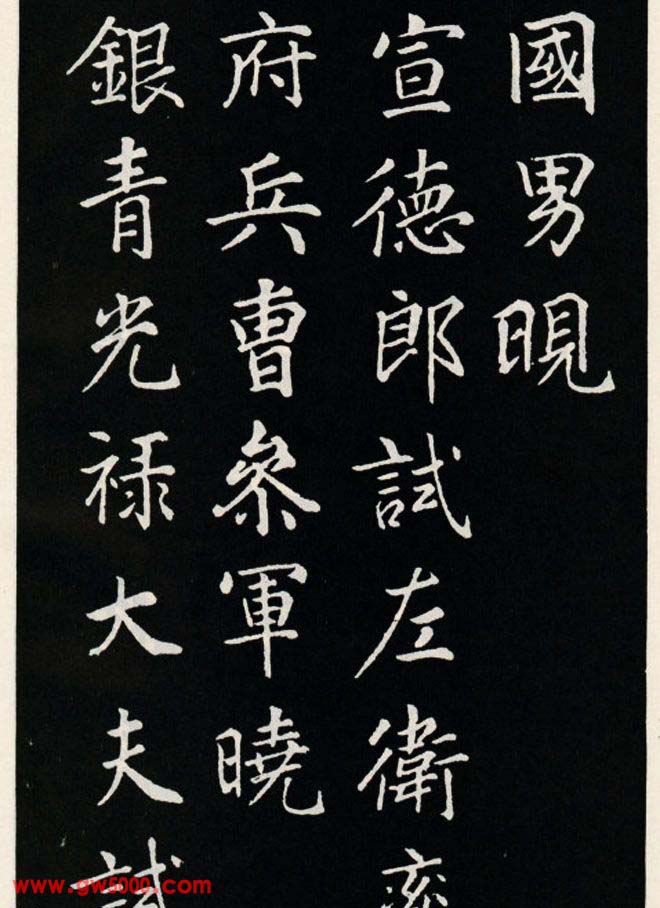 國男晛
宣德郎試左衛率
府兵曹參軍曉
銀青光禄大夫試
www.gw5000.com